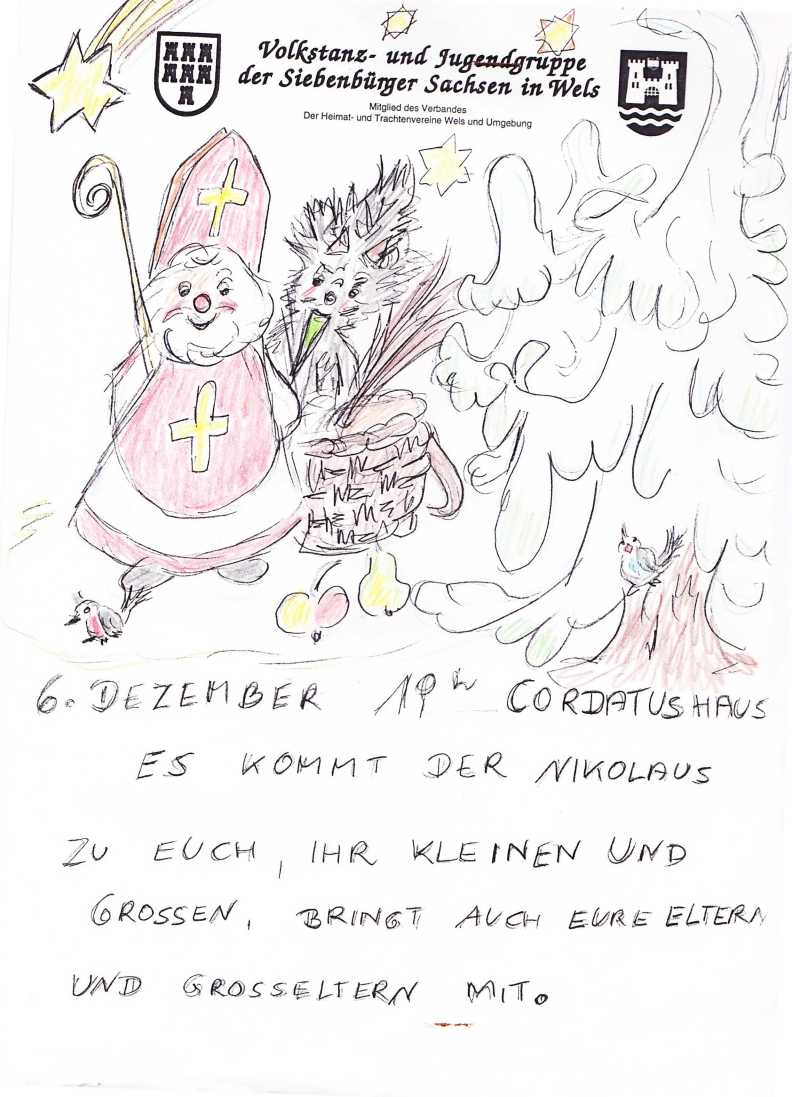 Volkstanz- und Jugendgruppe
der Siebenbürger Sachsen in Wels
Mitglied des Verbandes
Der Heimat- und Trachtenvereine Wels und Umgebung
6. DEZEMBER 19h CORDATUSHAUS
ES KOMMT DER NIKOLAUS
ZU EUCH, IHR KLEINEN UND
GROSSEN, BRINGT AUCH EURE ELTERN
UND GROSSELTERN MIT.